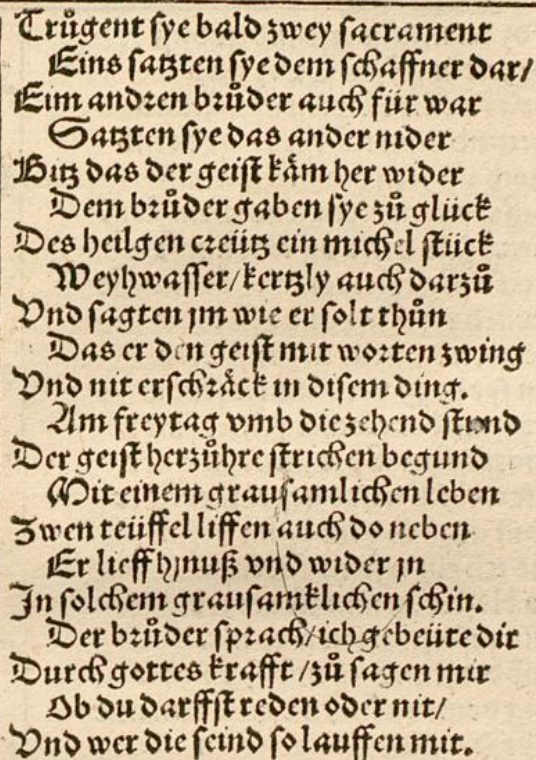 Trůgent sye bald zwey sacrament
Eins satzten sye dem schaffner dar/
Eim andren brůder auch für war
Satzten sye das ander nider
Bitz das der geist käm her wider
Dem brůder gaben sye zů glück
Des heilgen creütz ein michel stück
Weyhwasser/kertzly auch darzů
Vnd sagten jm wie er solt thůn
Das er den geist mit worten zwing
Vnd nit erschräck in disem ding.
Am freytag vmb die zehend stund
Der geist herzůhre strichen begund
Mit einem grausamlichen leben
Zwen teüffel liffen auch do neben
Er lieff hjnuß vnd wider jn
In solchem grausamklichen schin.
Der brůder sprach/ich gebeüte dir
Durch gottes krafft/zů sagen mir
Ob du darffst reden oder nit/
Vnd wer die seind so lauffen mit.